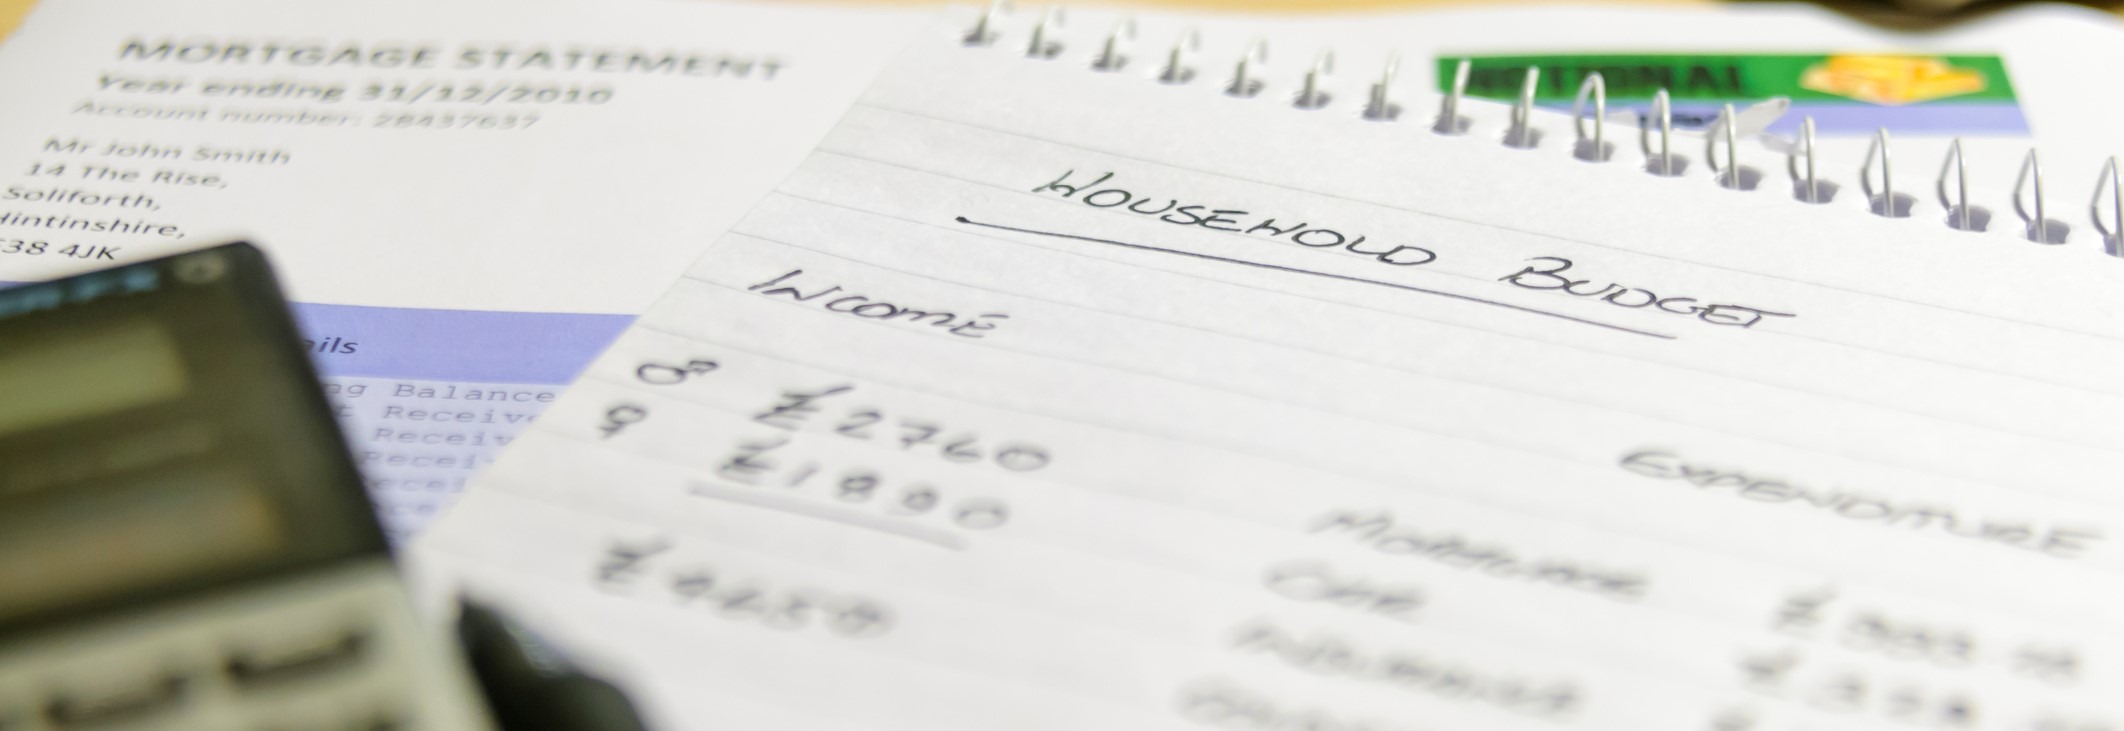 MORTGAGE STATEMENT
Year ending 31/12/2010
Account number: 28437637
Mr John Smith
14 The Rise,
Soliforth,
Hintinshire,
38 4JK
ils
ng Balance
t Receiv
Receiv
Recei
ecei
NOTIONAL
HOUSEHOLD BUDGET
INCOME
♂ £2760
♀ £1890
£4650
EXPENDITURE
MORTGAGE
CAR
INSURANCE